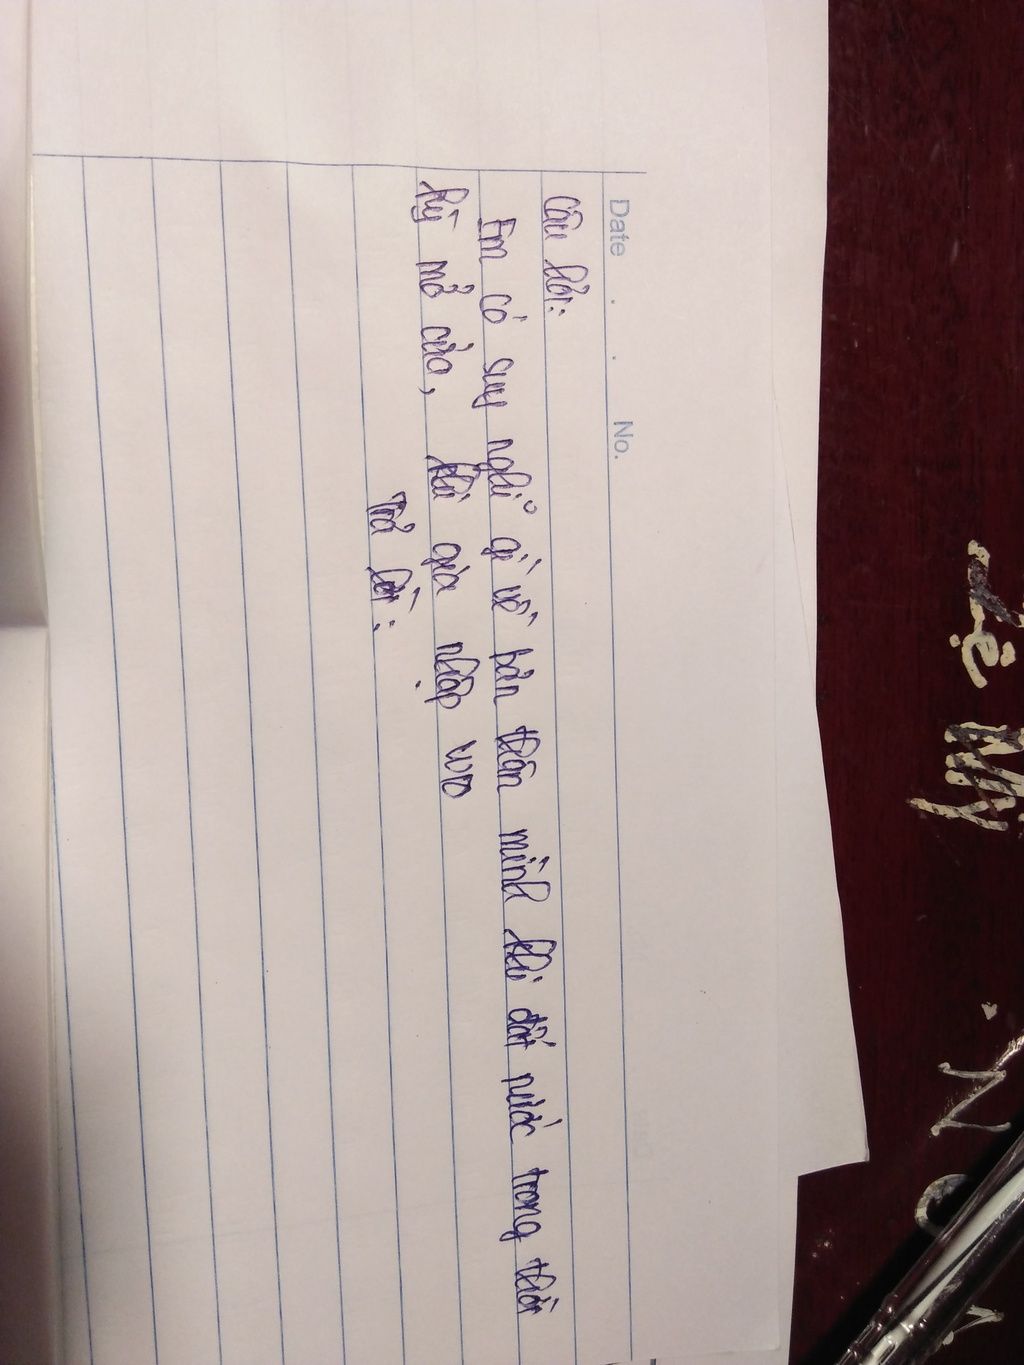 Date . . No.
Câu hỏi:
Em có suy nghỉ gì về bản thân mình khi đất nước trong thời
kỳ mở cửa, khi gia nhập WTO
Trả lời: